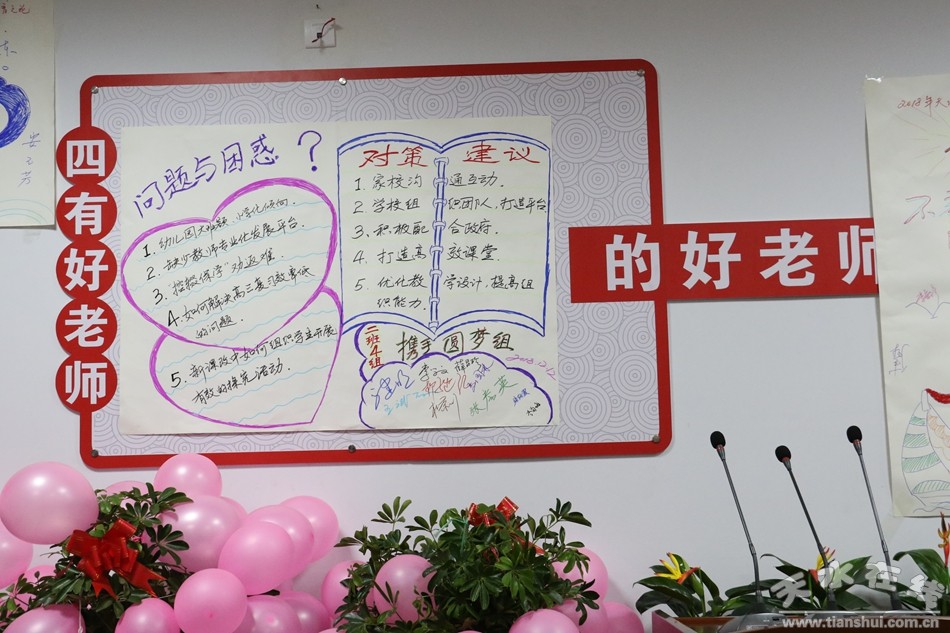 四有好老师
问题与困惑？
1. 幼儿园大班额 小学化倾向.
2. 缺少教师专业化发展平台.
3. 控辍保学 劝返难.
4. 如何解决高三复习效率低
的问题.
5. 新课改中如何组织学生开展
有效的探究活动.
对策 建议
1. 家校沟通互动.
2. 学校组织团队, 打造平台
3. 积极配合政府.
4. 打造高效课堂.
5. 优化教学设计, 提高组
织能力.
二班4组
携手圆梦组
的好老师
天水在线
www.tianshui.com.cn